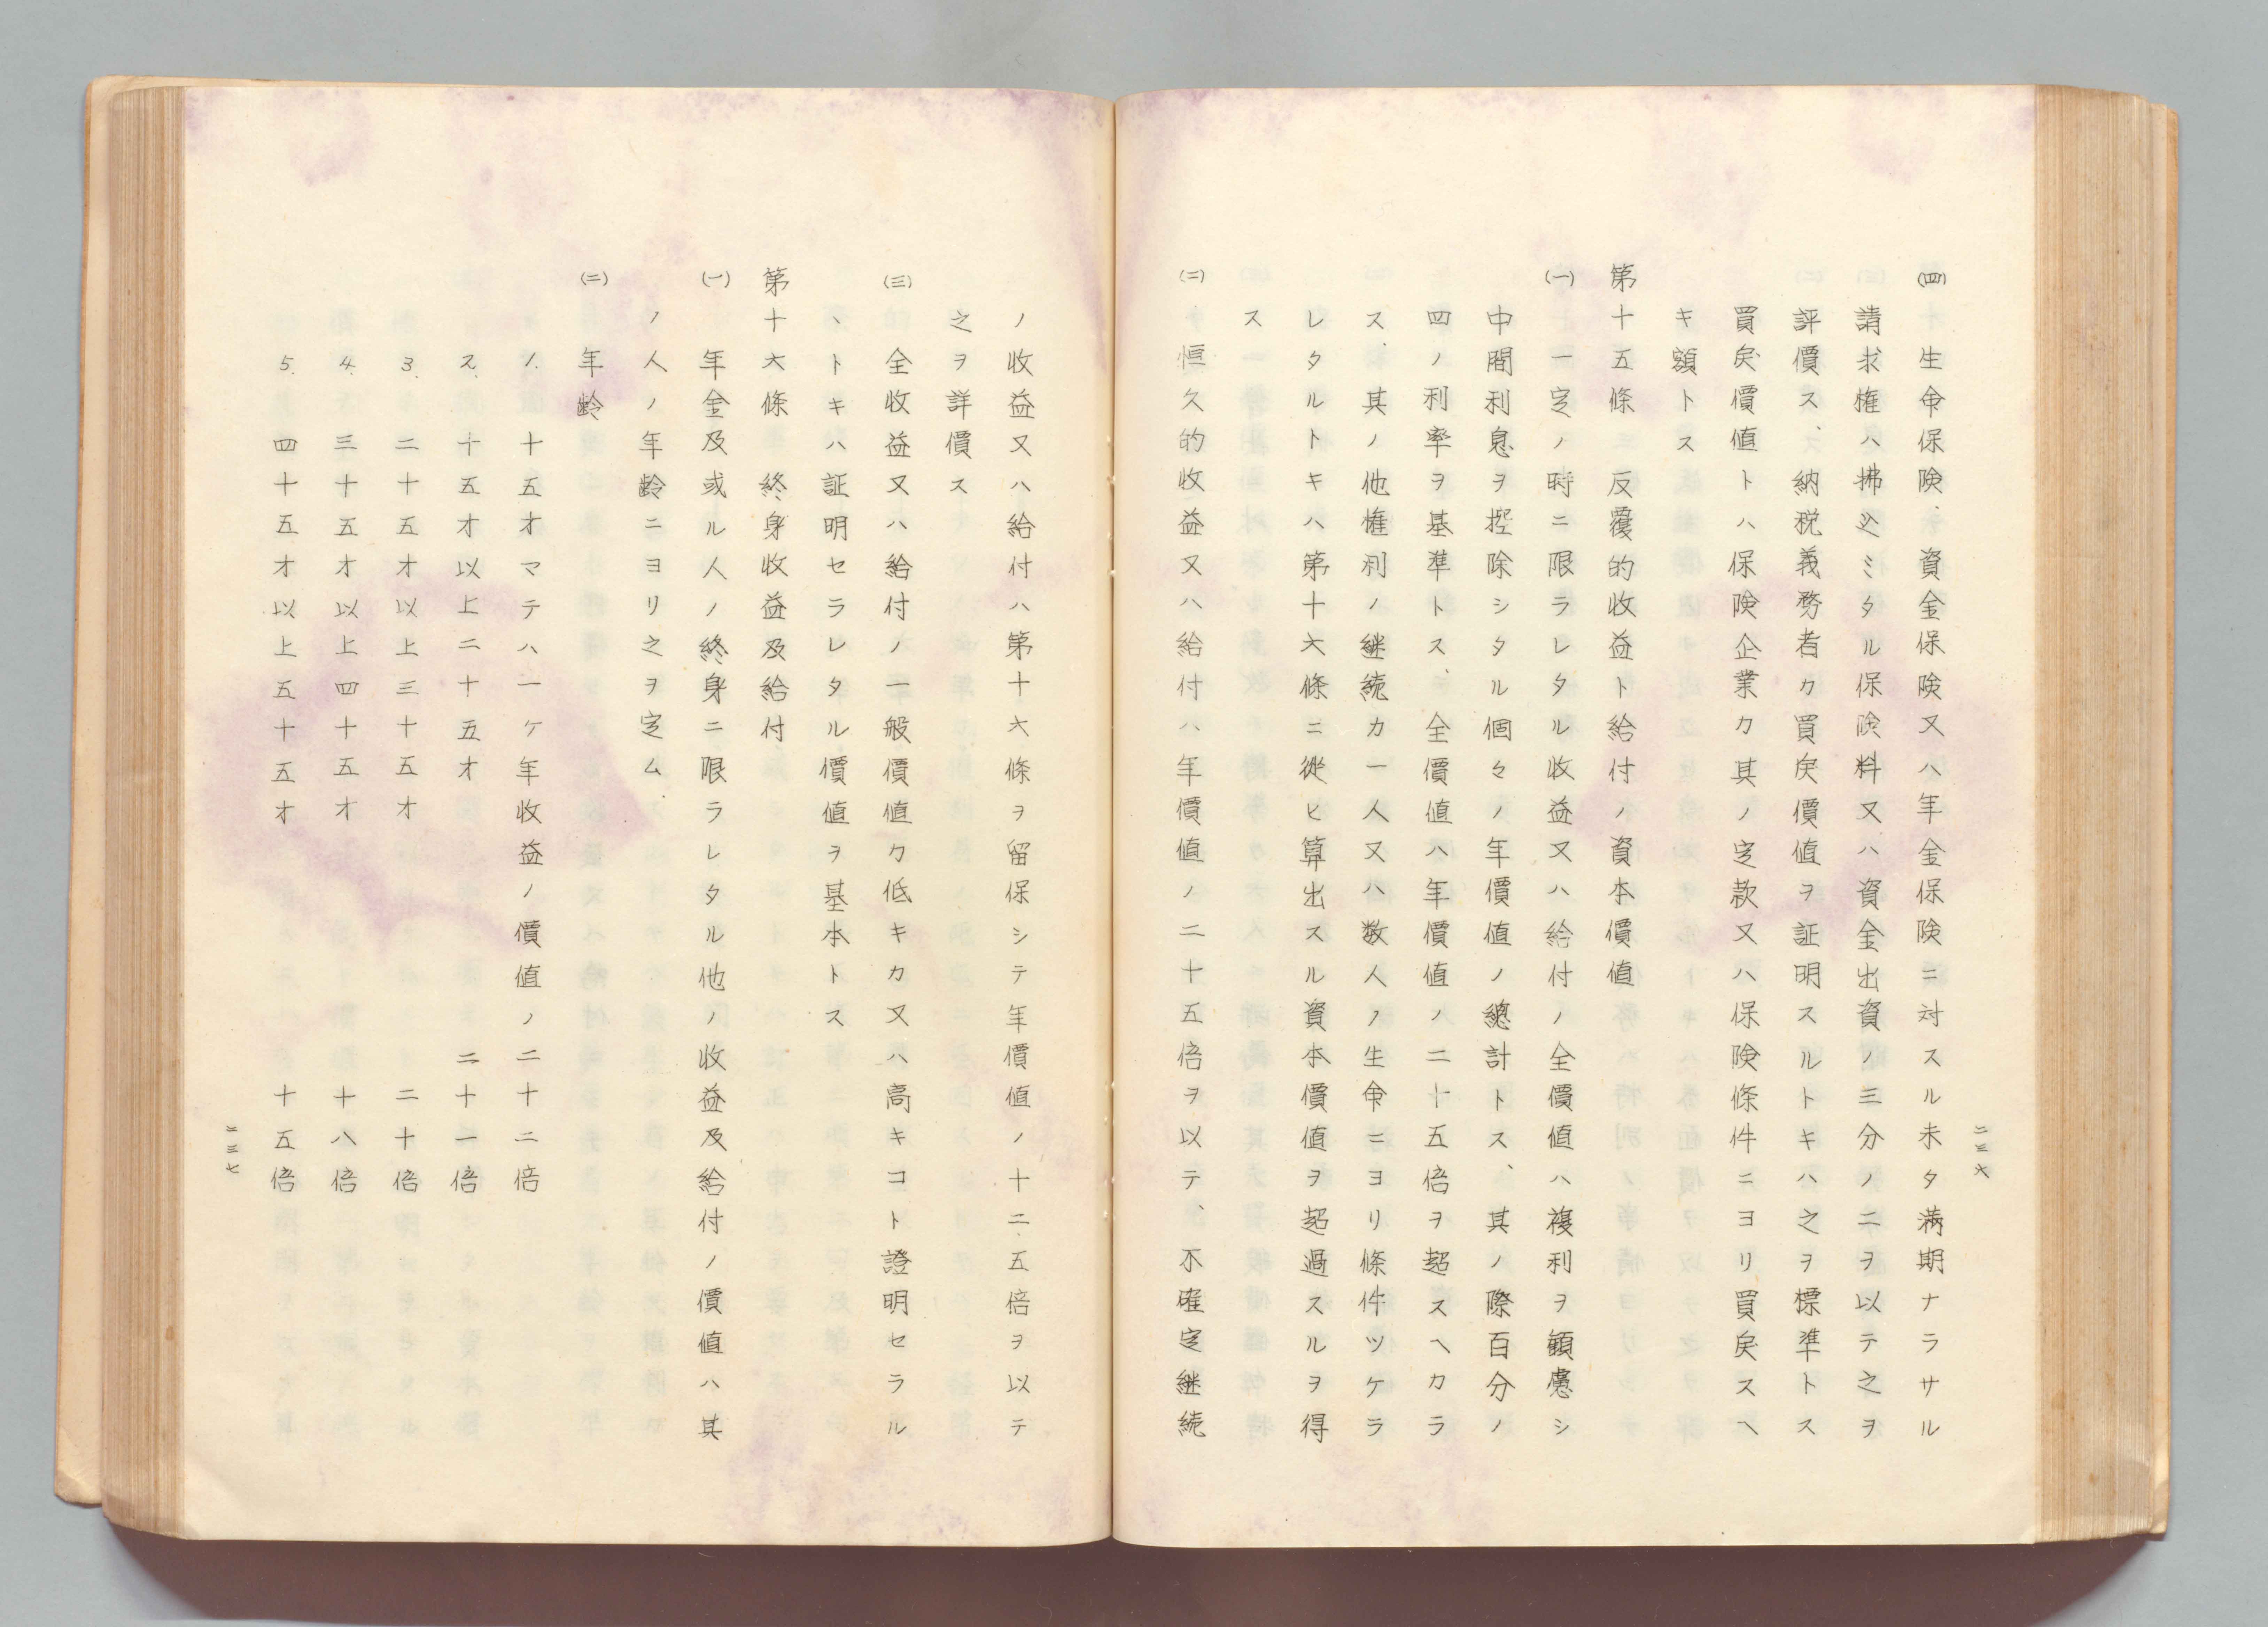 二三六
(四) 生命保険、資金保険又ハ年金保険ニ対スル未タ満期ナラサル
請求権ハ拂込ミタル保険料又ハ資金出資ノ三分ノ二ヲ以テ之ヲ
評價ス、納税義務者カ買戻價値ヲ証明スルトキハ之ヲ標準トス
買戻價値トハ保険企業カ其ノ定款又ハ保険條件ニヨリ買戻スヘ
キ額トス
第十五條 反覆的收益ト給付ノ資本價値
(一) 一定ノ時ニ限ラレタル收益又ハ給付ノ全價値ハ複利ヲ顧慮シ
中間利息ヲ控除シタル個々ノ年價値ノ總計トス、其ノ際百分ノ
四ノ利率ヲ基準トス、全價値ハ年價値ノ二十五倍ヲ超スヘカラ
ス、其ノ他権利ノ継続カ一人又ハ数人ノ生命ニヨリ條件ツケラ
レタルトキハ第十六條ニ從ヒ算出スル資本價値ヲ超過スルヲ得
ス
(二) 恒久的收益又ハ給付ハ年價値ノ二十五倍ヲ以テ、不確定継続
ノ收益又ハ給付ハ第十六條ヲ留保シテ年價値ノ十二、五倍ヲ以テ
之ヲ詳價ス
(三) 全收益又ハ給付ノ一般價値カ低キカ又ハ高キコト證明セラル
、トキハ証明セラレタル價値ヲ基本トス
第十六條 終身收益及給付
(一) 年金及或ル人ノ終身ニ限ラレタル他ノ收益及給付ノ價値ハ其
ノ人ノ年齢ニヨリ之ヲ定ム
(二) 年齢
1. 十五才マテハ一ケ年收益ノ價値ノ二十二倍
2. 十五才以上二十五才 二十一倍
3. 二十五才以上三十五才 二十倍
4. 三十五才以上四十五才 十八倍
5. 四十五才以上五十五才 十五倍
二三七